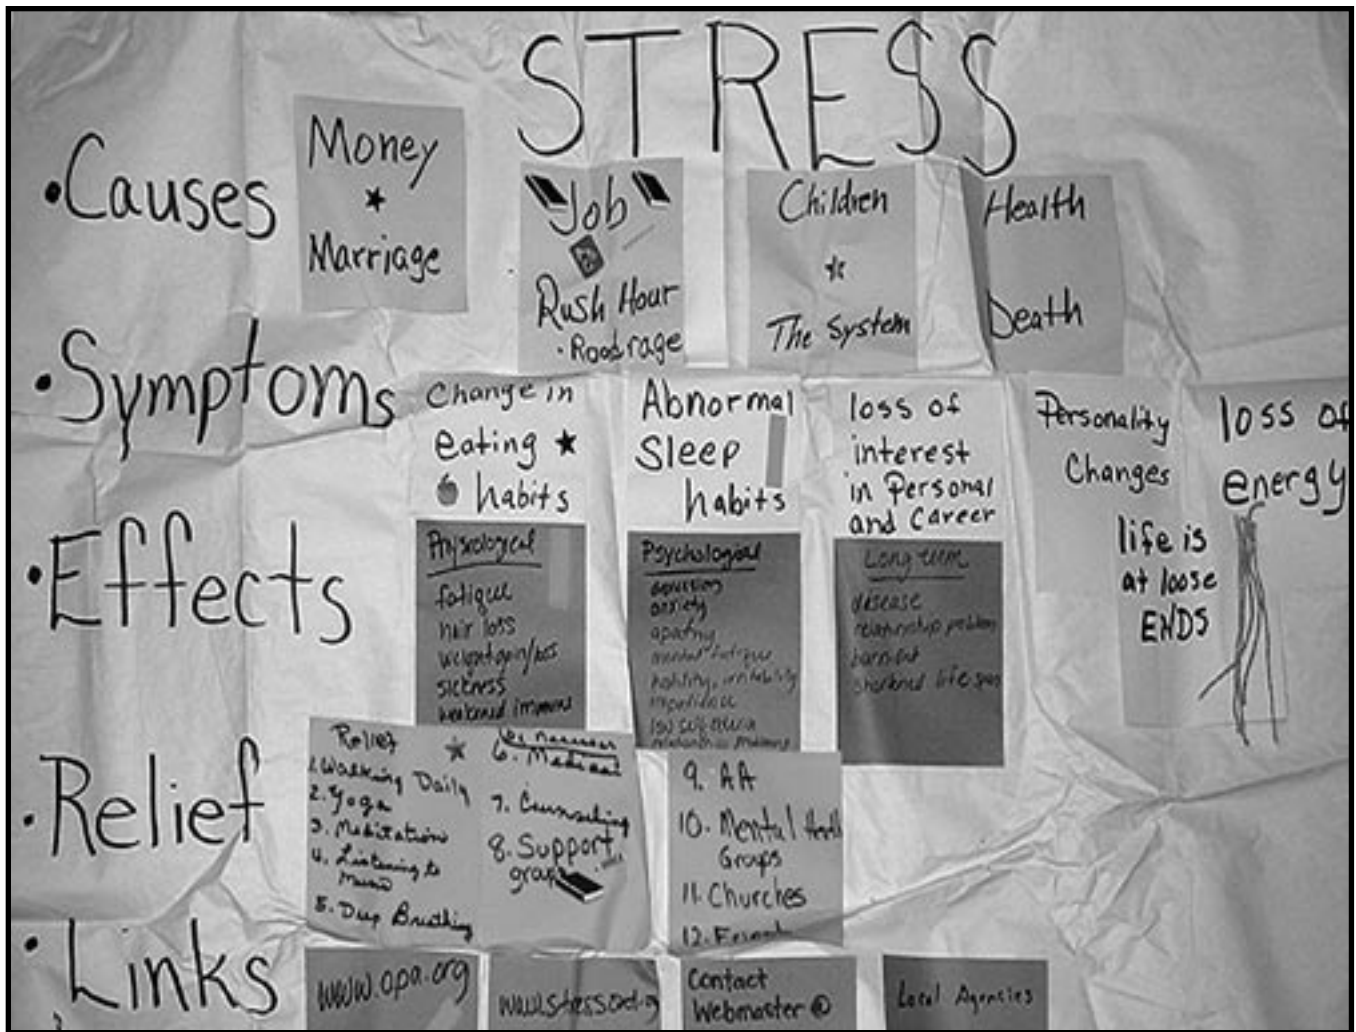 STRESS
• Causes
Money
Marriage
Job
Rush Hour
• Road rage
Children
The System
Health
Death
• Symptoms
Change in
eating
habits
Abnormal
Sleep
habits
loss of
interest
in Personal
and Career
Personality
Changes
life is
at loose
ENDS
loss of
energy
• Effects
Physiological
fatigue
hair loss
weight gain/loss
sickness
weakened immune
Psychological
anxiety
apathy
mental fatigue
hostility, irritability
impatience
low self-esteem
relationship problems
Long term
disease
relationship problem
burnout
shortened life span
• Relief
Relief
1. Walking Daily
2. Yoga
3. Meditation
4. Listening to
Music
5. Deep Breathing
6. Medical
7. Counseling
8. Support
group
9. AA
10. Mental Health
Groups
11. Churches
12.
• Links
www.apa.org
Contact
Webmaster @
Local Agencies